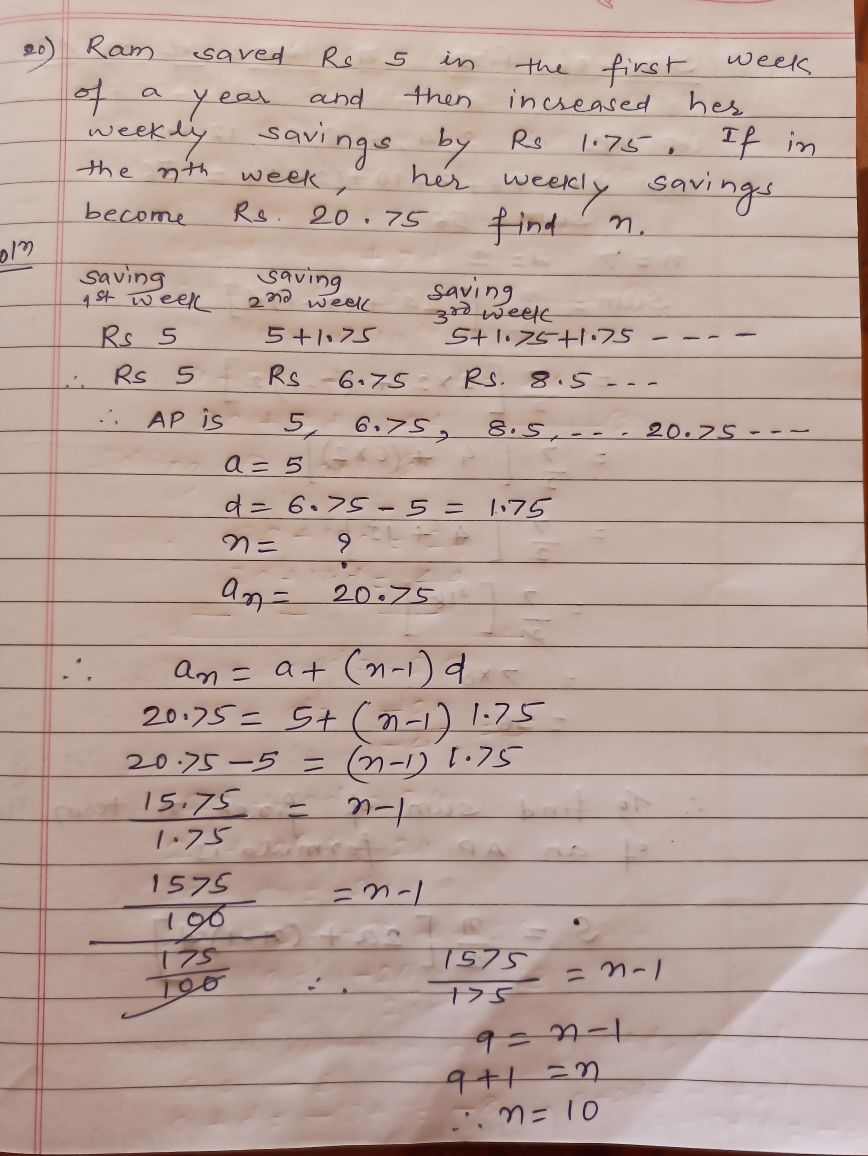 20) Ram saved Rs 5 in the first week
of a year and then increased her
weekly savings by Rs 1.75. If in
the nth week, her weekly savings
become Rs. 20.75 find n.
soln
saving saving saving
1st week 2nd week 3rd week
Rs 5 5+1.75 5+1.75+1.75 ----
∴ Rs 5 Rs 6.75 Rs. 8.5 ---
∴ AP is 5, 6.75, 8.5, --- 20.75 ---
a = 5
d = 6.75 - 5 = 1.75
n = ?
an = 20.75
∴ an = a + (n-1) d
20.75 = 5 + (n-1) 1.75
20.75 - 5 = (n-1) 1.75
15.75 / 1.75 = n-1
1575 / 100 = n-1
175 / 100 ∴ 1575 / 175 = n-1
9 = n-1
9+1 = n
∴ n = 10